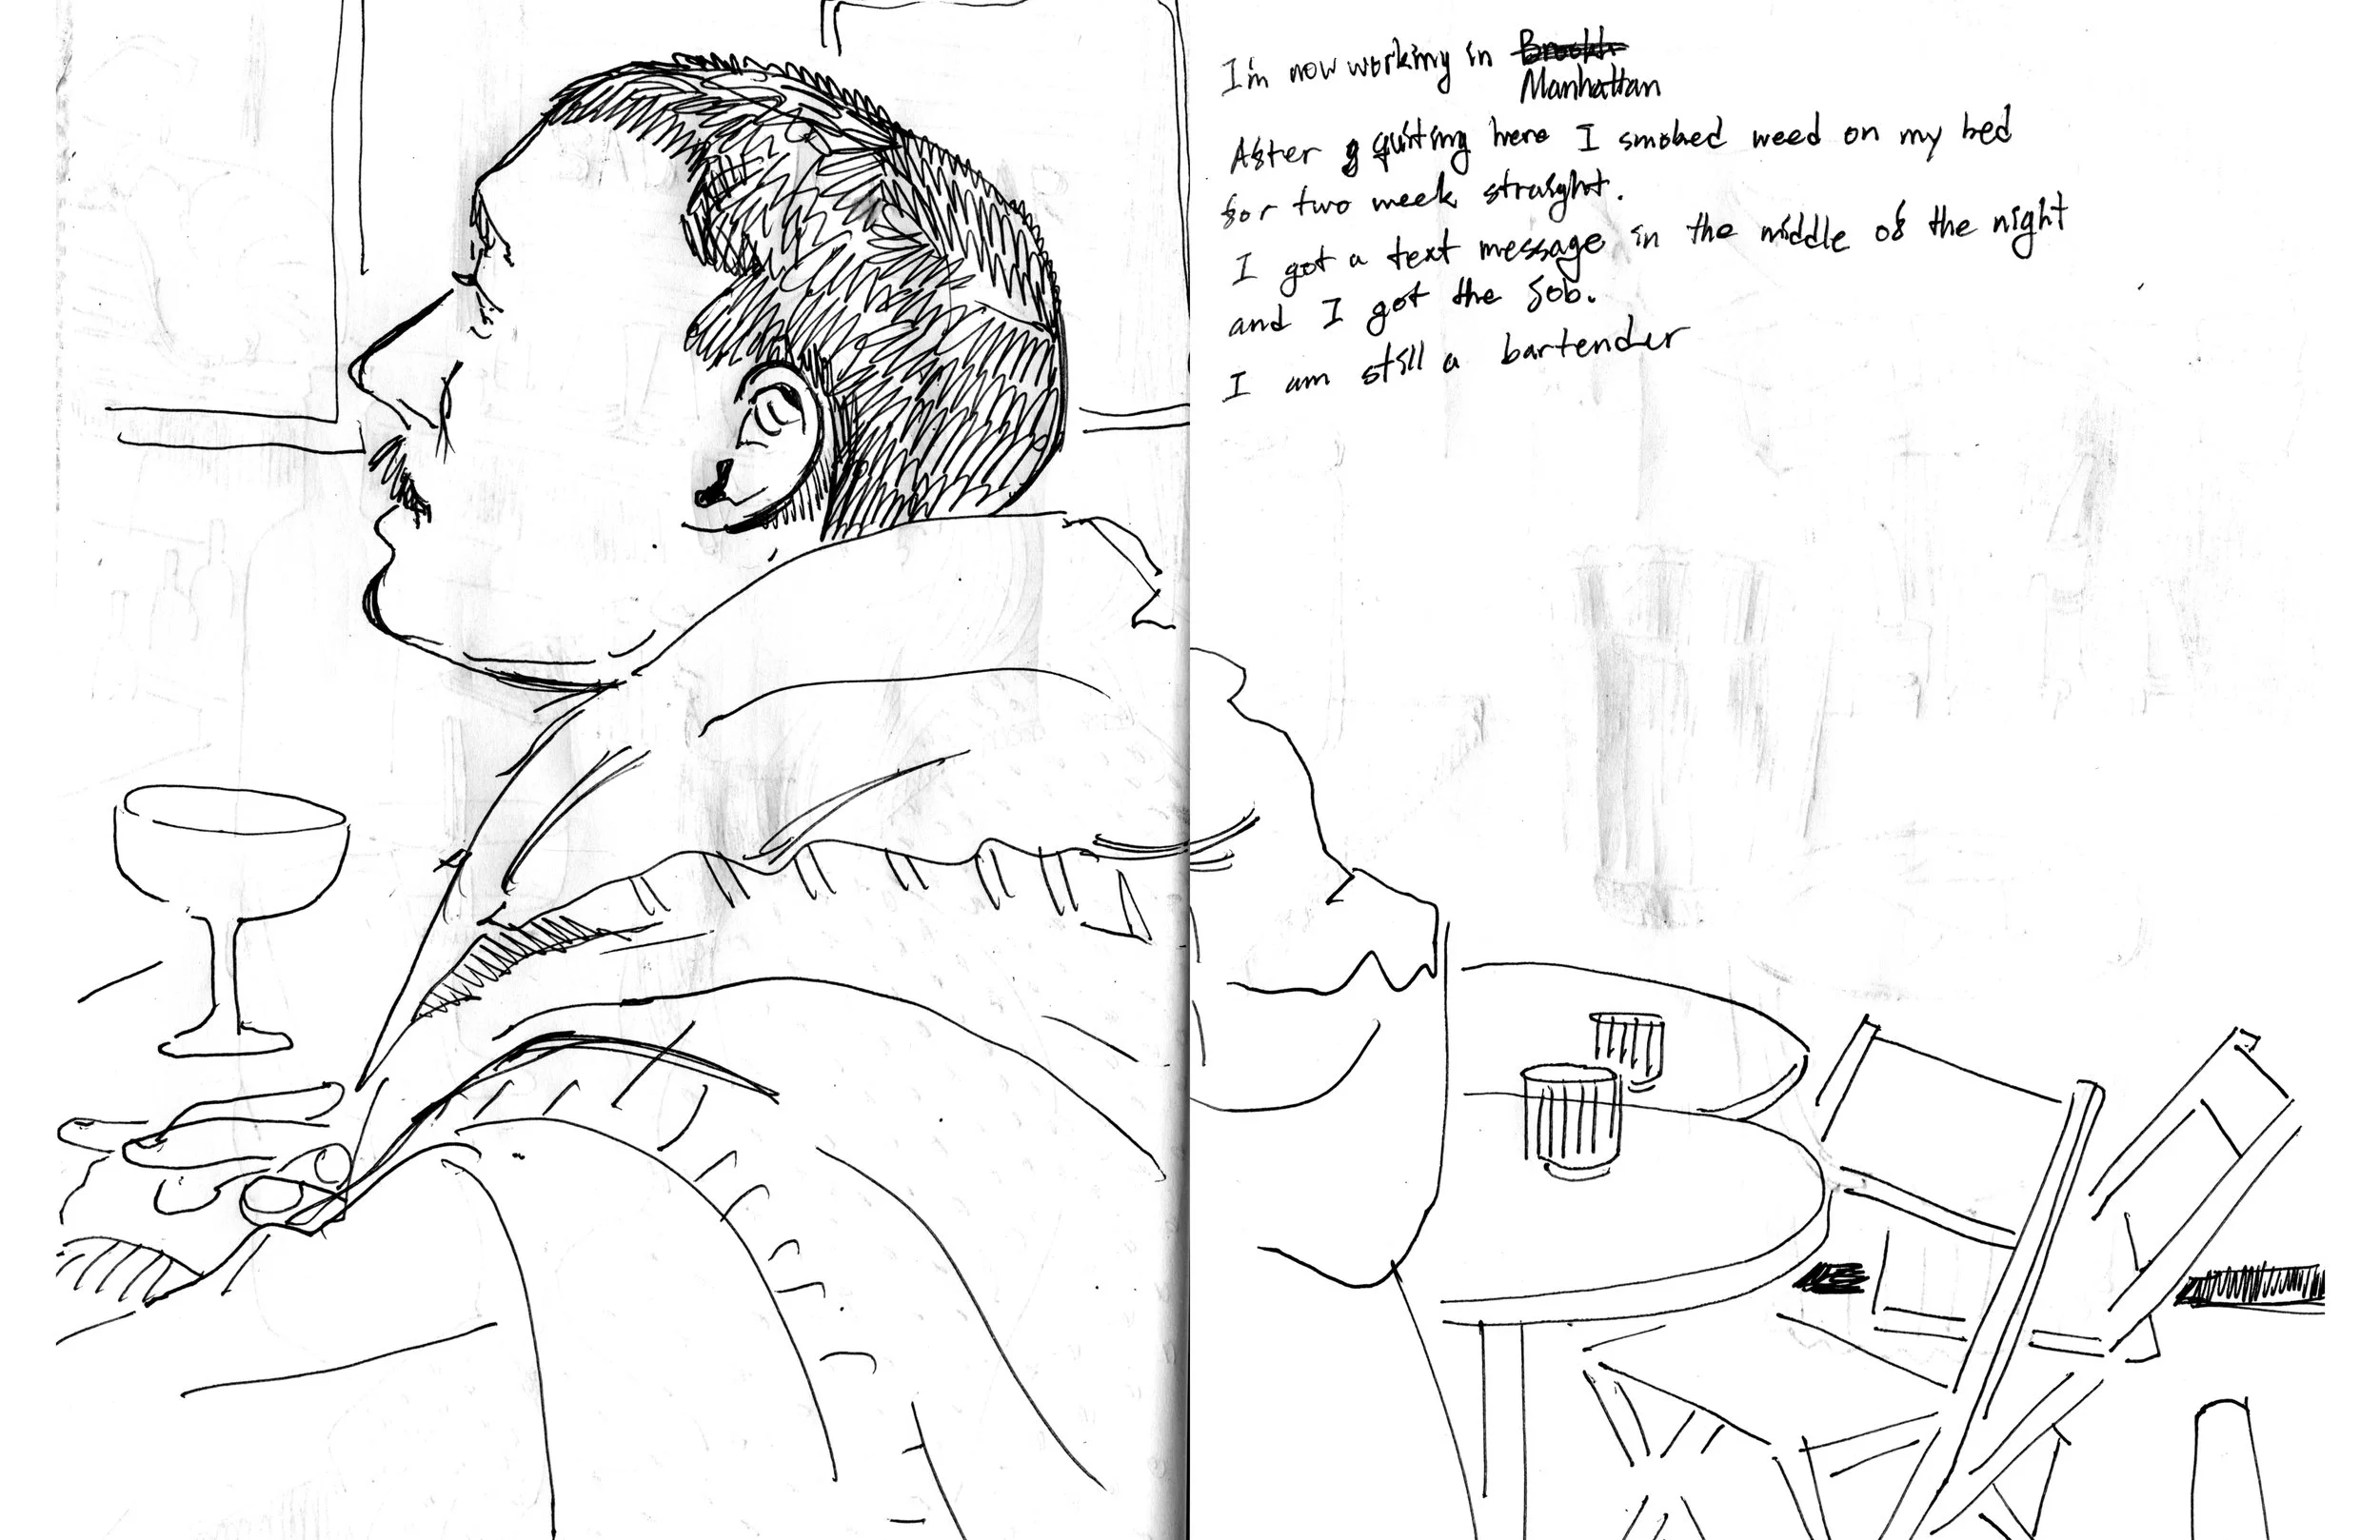 I'm now working in Brookl
Manhattan
After quiting here I smoked weed on my bed
for two week straight.
I got a text message in the middle of the night
and I got the job.
I am still a bartender